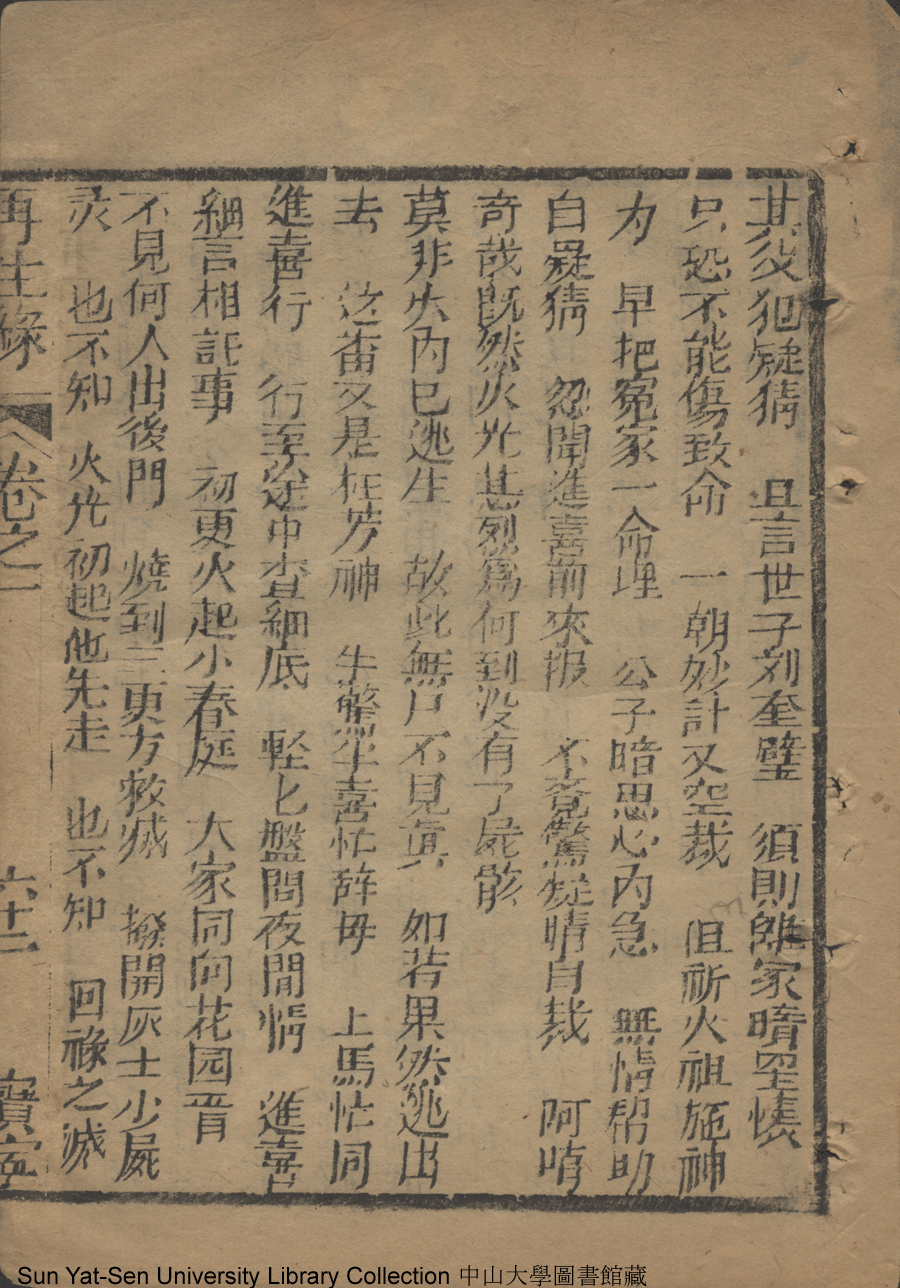 其後犯疑猜 且言世子刘奎璧 須則離家暗罣懐
只恐不能傷致命 一朝妙計又空裁 但祈火祖施神
力 早把冤家一命埋 公子暗思心內急 無情帮助
自疑猜 忽聞進喜前來报 不竟驚疑晴自裁 阿唷
奇哉既然火光甚烈為何到没有了屍骸
莫非火內已逃生 故此無尸不見真 如若果然逃出
去 这畨又是枉労神 半驚半喜忙辞毋 上馬忙同
進喜行 行至途中查細底 軽匕盤問夜間情 進喜
細言相託事 初更火起小春庭 大家同向花园晋
不見何人出後門 燒到三更方救滅 撥開灰土少屍
灵 也不知 火光初起他先走 也不知 回祿之滅
再生錄 卷之一 六十二 寶寧
Sun Yat-Sen University Library Collection 中山大學圖書館藏